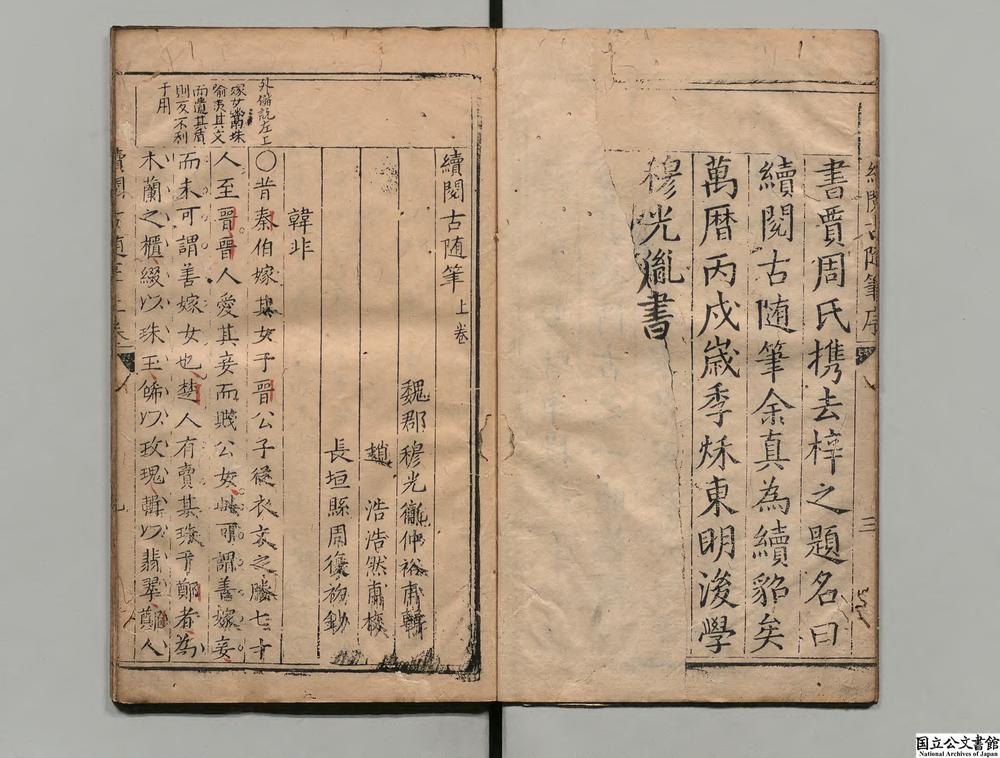 書賈周氏携去梓之題名曰
續閱古随筆余真為續貂矣
萬曆丙戌歲季秌東明後學
穆光胤書
續閱古随筆序
三
續閱古随筆 上卷
魏郡穆光胤仲裕甫輯
趙 浩浩然甫校
長垣縣周復初鈔
韓非
外儲說左上
〇昔秦伯嫁其女于晉公子從衣文之媵七十
人至晉晉人愛其妾而賤公女此可謂善嫁妾
而未可謂善嫁女也楚人有賣其珠于鄭者為
木蘭之櫃綴以珠玉餙以玫瑰輯以翡翠鄭人
嫁女鬻珠
喻失其文
而遺其質
則反不利
于用